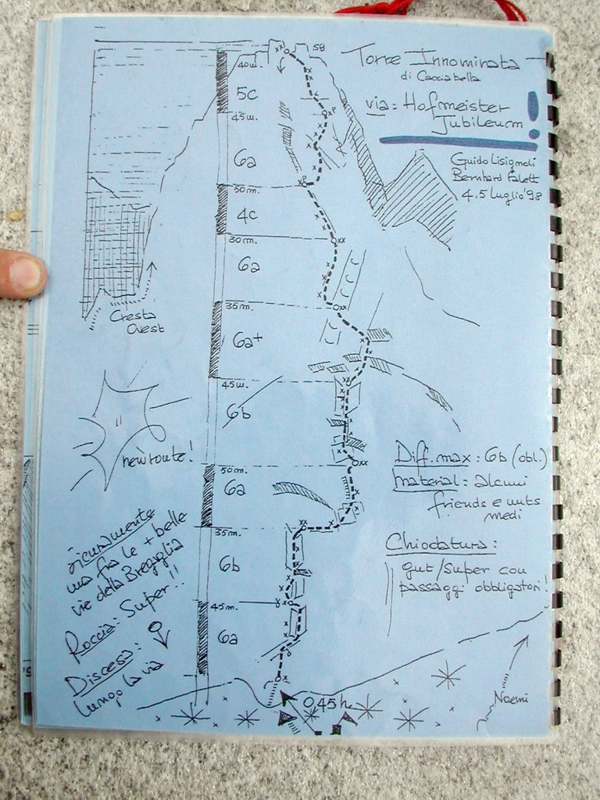 Torre Innominata
di Cacciabella
via: Hofmeister
Jubileum!
Guido Lisignoli
Bernhard
4.5 Luglio '98
58
40m.
5c
45m.
6a
50m.
4c
30m.
6a
35m.
6a+
45m.
6b
50m.
6a
35m.
6b
45m.
6a
Cresta
Ovest
new route!
Diff. max: 6b (obl)
material: alcuni
friends e nuts
medi
Chiodatura:
gut/super con
passaggi obbligatori!
sicuramente
una fra le + belle
vie della Bregaglia
Roccia: Super!!
Discesa:
lungo la via
0,45 h
Naemi